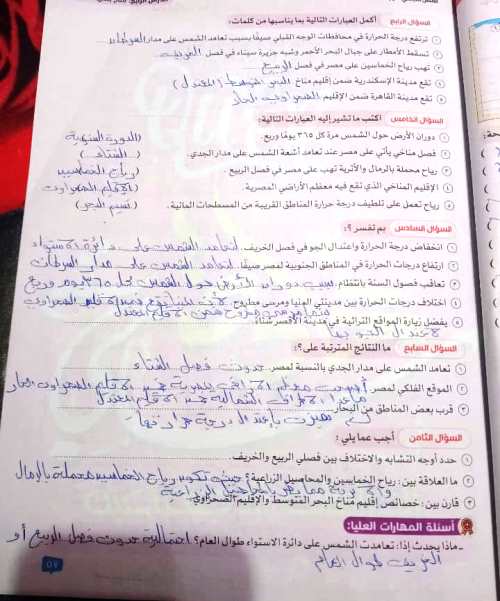 السؤال الرابع أكمل العبارات التالية بما يناسبها من كلمات:
١ ترتفع درجة الحرارة في محافظات الوجه القبلي صيفًا بسبب تعامد الشمس على مدار السرطان
٢ تسقط الأمطار على جبال البحر الأحمر وشبه جزيرة سيناء في فصل الخريف
٣ تهب رياح الخماسين على مصر في فصل الربيع
٤ تقع مدينة الإسكندرية ضمن إقليم مناخ البحر المتوسط (المعتدل)
٥ تقع مدينة القاهرة ضمن الإقليم الصحراوى الحار
السؤال الخامس اكتب ما تشير إليه العبارات التالية:
١ دوران الأرض حول الشمس مرة كل ٣٦٥ يومًا وربع. (الدورة السنوية)
٢ فصل مناخي يأتي على مصر عند تعامد أشعة الشمس على مدار الجدي. (الشتاء)
٣ رياح محملة بالرمال والأتربة تهب على مصر في فصل الربيع. (رياح الخماسين)
٤ الإقليم المناخي الذي تقع فيه معظم الأراضي المصرية. (الإقليم الصحراوى)
٥ رياح تعمل على تلطيف درجة حرارة المناطق القريبة من المسطحات المائية. (نسيم البحر)
السؤال السادس بم تفسر ؟:
١ انخفاض درجة الحرارة واعتدال الجو في فصل الخريف. لتعامد الشمس على دائرة الاستواء
٢ ارتفاع درجات الحرارة في المناطق الجنوبية لمصر صيفًا. لتعامد الشمس على مدار السرطان
٣ تعاقب فصول السنة بانتظام. بسبب دوران الأرض حول الشمس كل ٣٦٥ يوم وربع
٤ اختلاف درجات الحرارة بين مدينتي المنيا ومرسى مطروح. لأن المنيا تقع ضمن الإقليم الصحراوي
بينما مرسى مطروح ضمن الإقليم المعتدل
٥ يفضل زيارة المواقع التراثية في مدينة الأقصر شتاءً.
لاعتدال الجو بها
السؤال السابع ما النتائج المترتبة على؟:
١ تعامد الشمس على مدار الجدي بالنسبة لمصر. حدوث فصل الشتاء
٢ الموقع الفلكي لمصر. أصبحت معظم الأراضي المصرية ضمن الإقليم الصحراوى الحار
ماعدا الأطراف الشمالية ضمن الإقليم المعتدل
٣ قرب بعض المناطق من البحار. تميزت باعتدال درجة حرارتها
السؤال الثامن أجب عما يلي :
١ حدد أوجه التشابه والاختلاف بين فصلي الربيع والخريف.
٢ ما العلاقة بين: رياح الخماسين والمحاصيل الزراعية؟ حيث تكون رياح الخماسين محملة بالرمال
والأتربة مما يضر بالمحاصيل الزراعية
٣ قارن بين: خصائص إقليم مناخ البحر المتوسط والإقليم الصحراوي.
أسئلة المهارات العليا:
- ماذا يحدث إذا: تعامدت الشمس على دائرة الاستواء طوال العام؟ احتمالية حدوث فصل الربيع أو
الخريف طوال العام
٥٧